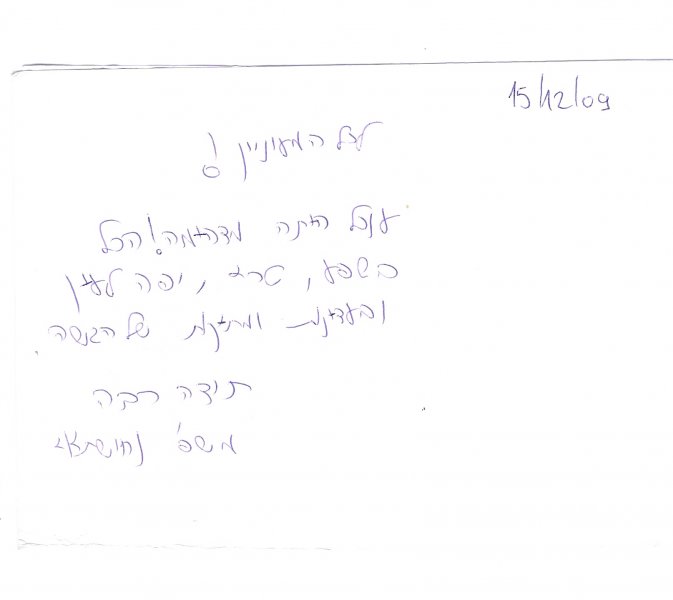 15/12/09
לכל המעוניין!
ענבל היתה מדהימה! הכל
בשפע, טרי, יפה לעין
ובעדינות ומתיקות של הגשה.
תודה רבה
משפ'